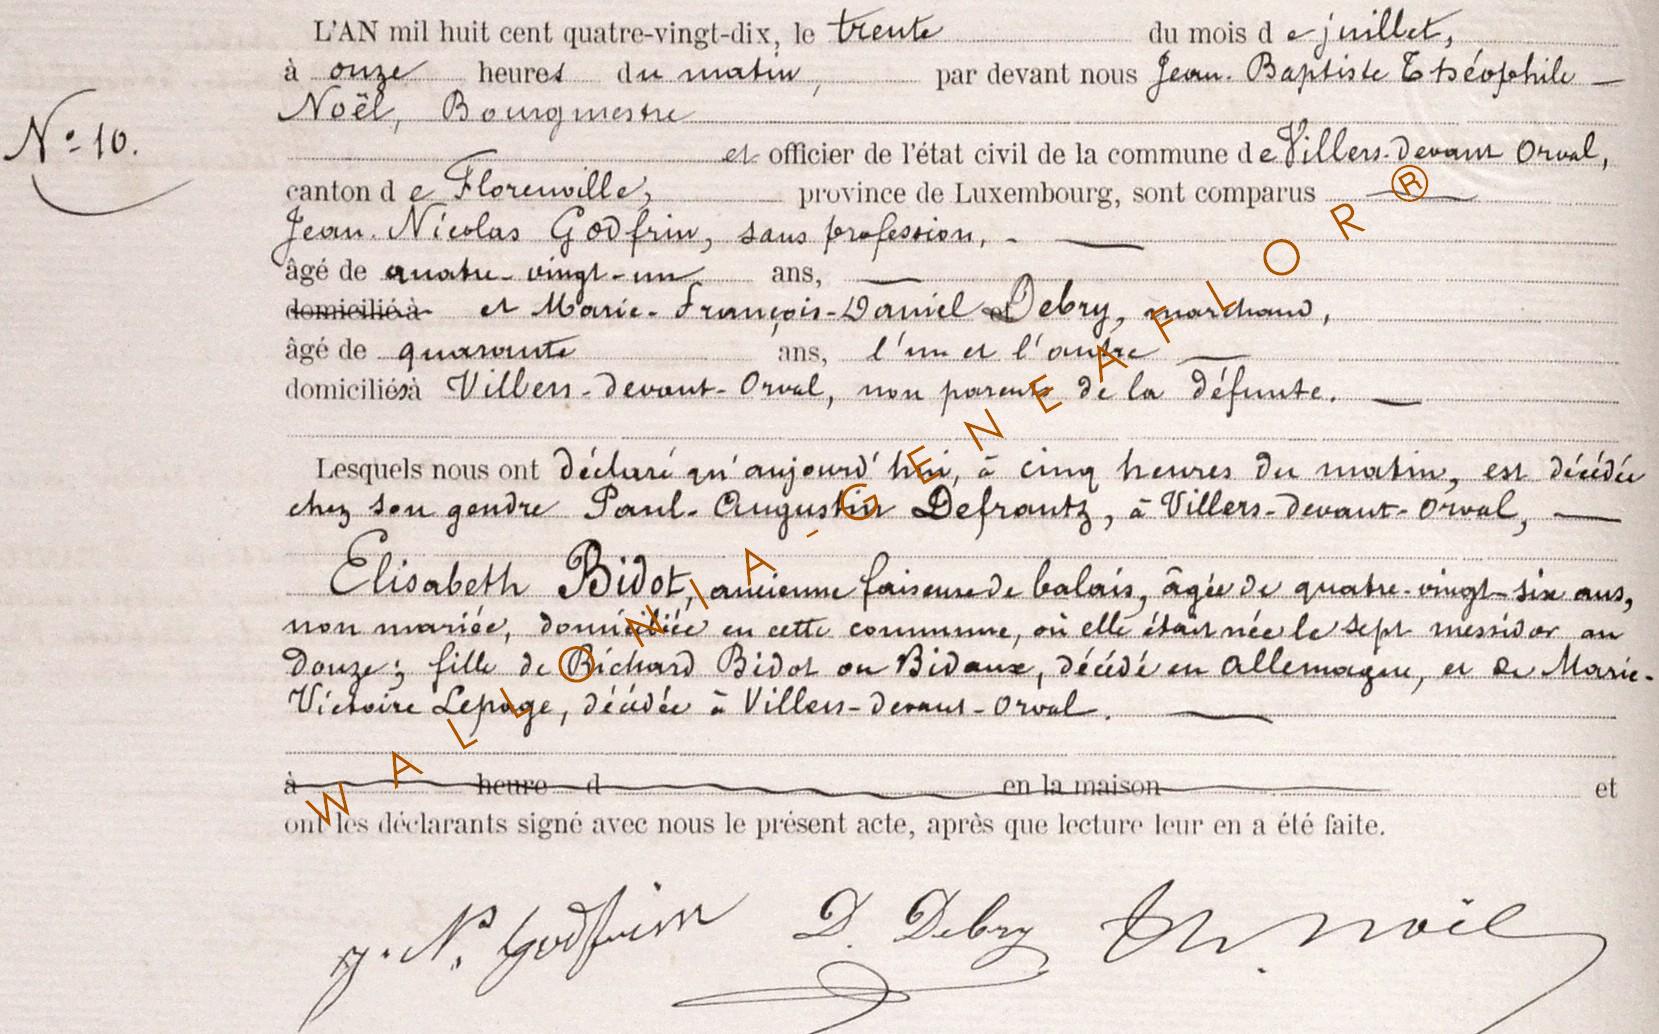 L'AN mil huit cent quatre-vingt-dix, le trente du mois de juillet,
à onze heures du matin, par devant nous Jean-Baptiste Théophile
Noël, Bourgmestre
N° 10.
et officier de l'état civil de la commune de Villers-devant Orval,
canton de Florenville, province de Luxembourg, sont comparus
Jean-Nicolas Godfrin, sans profession,
âgé de quatre-vingt-un ans,
domicilié à et Marie-François-Daniel Debry, marchand,
âgé de quarante ans, l'un et l'autre
domiciliés à Villers-devant-Orval, non parents de la défunte.
Lesquels nous ont déclaré qu'aujourd'hui, à cinq heures du matin, est décédée
chez son gendre Paul-Augustin Defrantz, à Villers-devant-Orval,
Elisabeth Bidot, ancienne faiseuse de balais, âgée de quatre-vingt-six ans,
non mariée, domiciliée en cette commune, où elle était née le sept messidor an
douze; fille de Richard Bidot ou Bidaux, décédé en Allemagne, et de Marie-
Victoire Lepage, décédée à Villers-devant-Orval.
à heure d en la maison et
ont les déclarants signé avec nous le présent acte, après que lecture leur en a été faite.
J. N. Godfrin D. Debry Th. Noël
WALLONIA-GENEAFLOR®